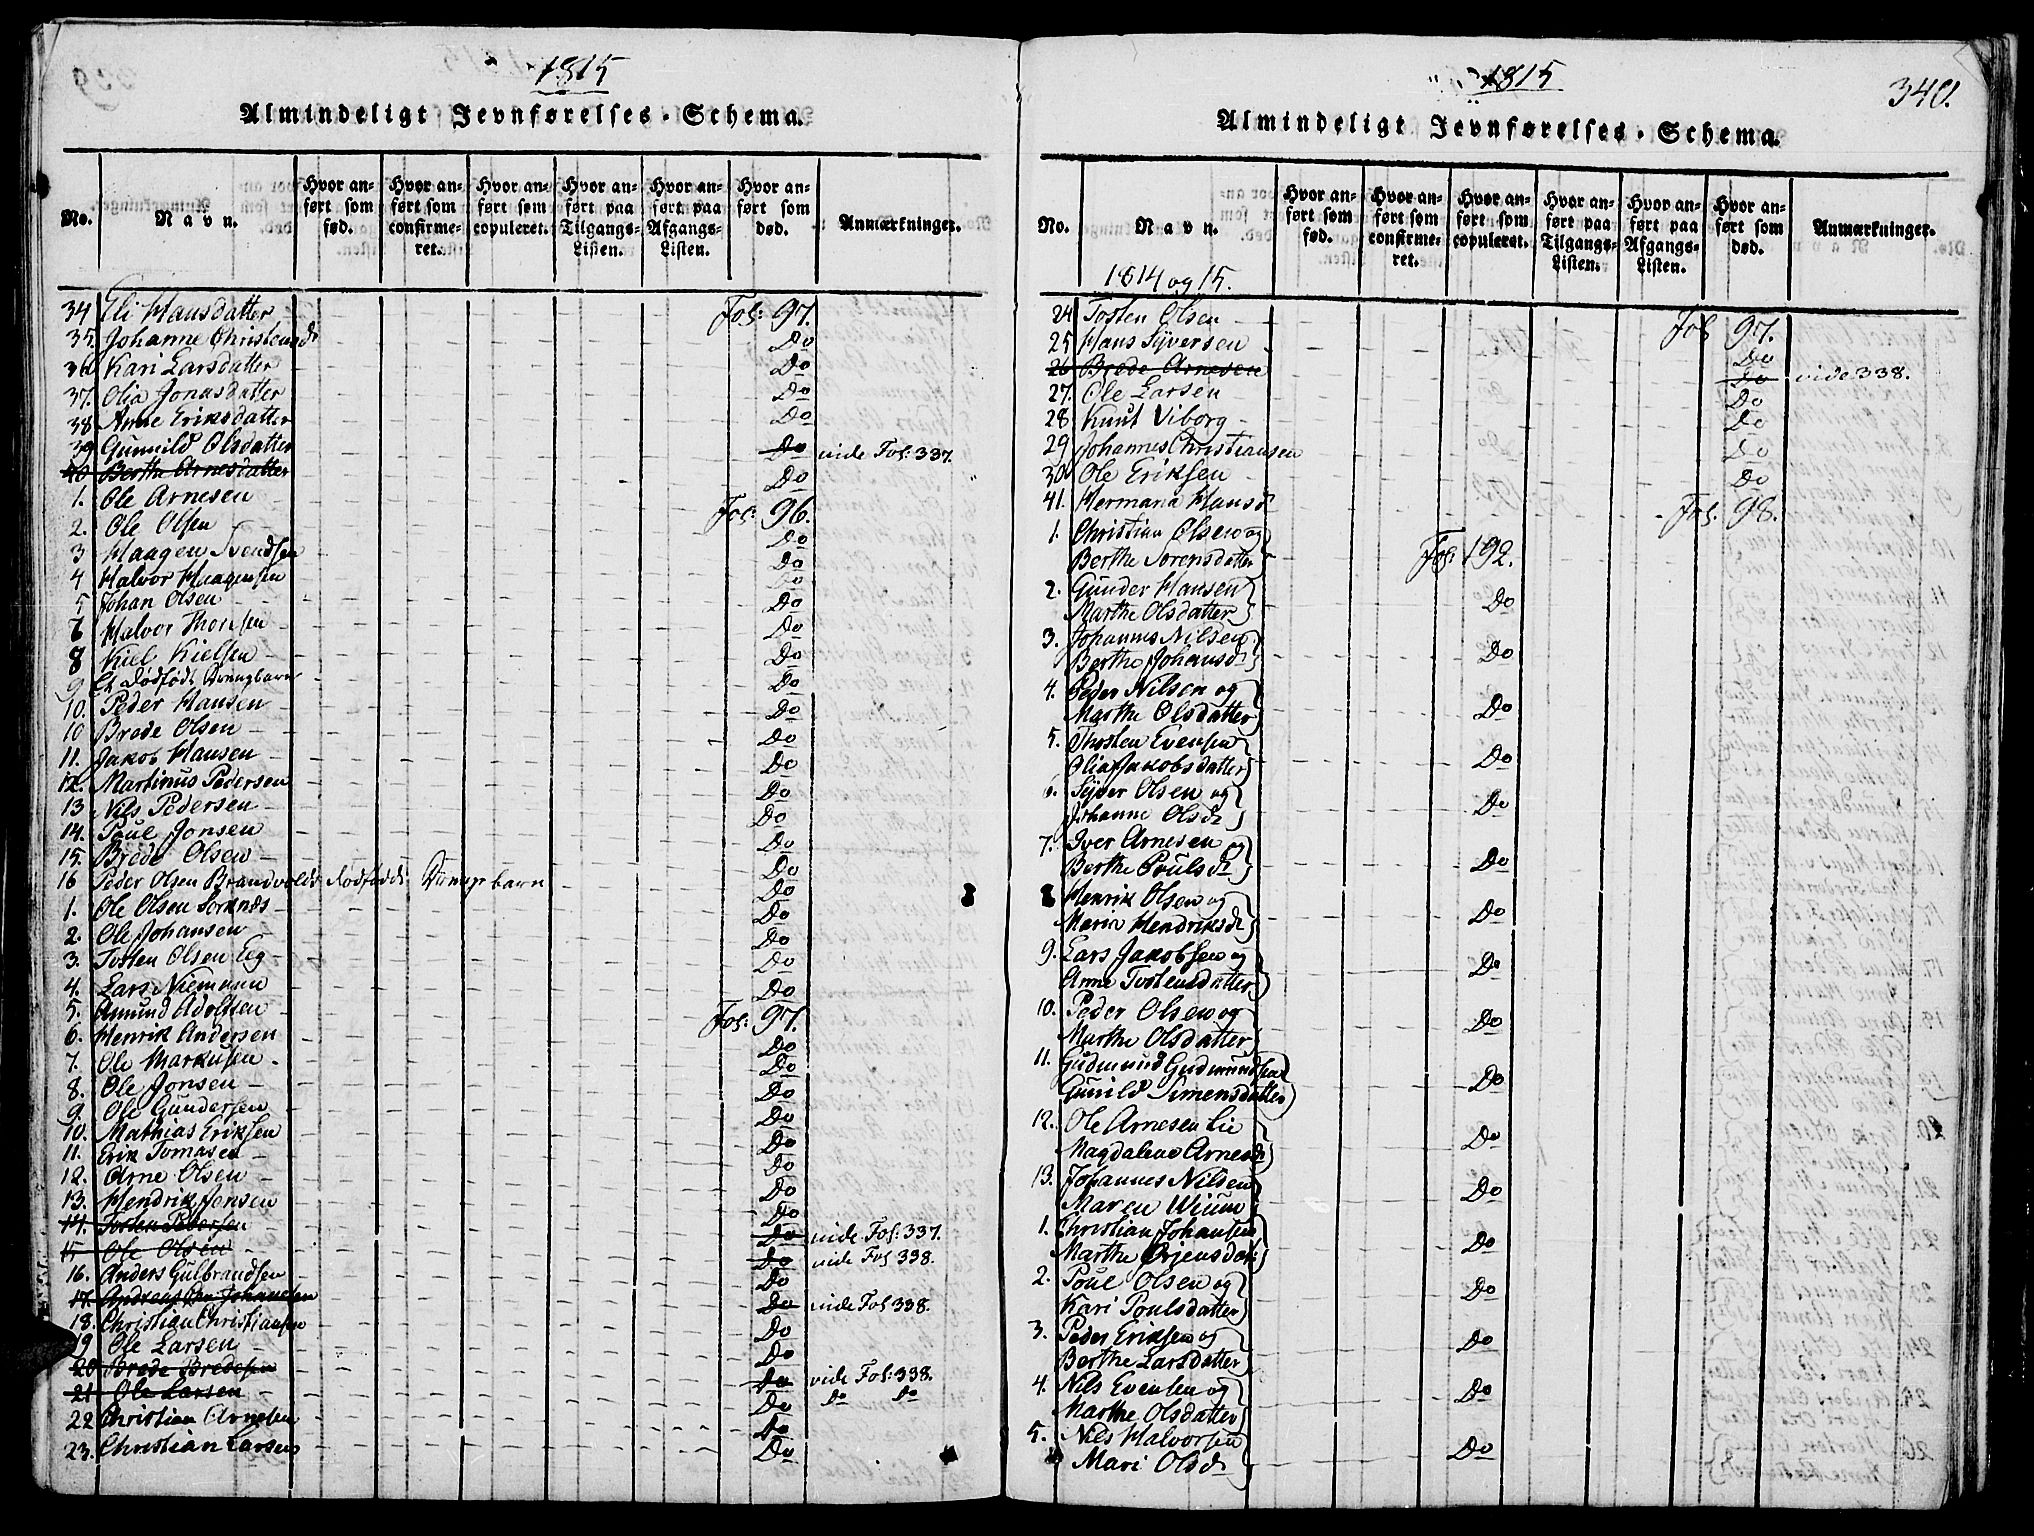 1815
Almindeligt Jevnførelses-Schema.
No. Navn. Hvor anført som fød. Hvor anført som confirmeret. Hvor anført som copuleret. Hvor anført paa Tilgangs-Listen. Hvor anført paa Afgangs-Listen. Hvor anført som død. Anmærkninger.
34 Eli Hansdatter Fol: 97.
35. Johanne Christensdr Do
36 Kari Larsdatter Do
37. Olia Jonasdatter Do
38 Anne Eriksdatter Do
39 Gunnild Olsdatter Do vide Fol: 337.
40 Berthe Arnesdatter Do
1. Ole Arnesen Fol: 96.
2. Ole Olsen Do
3 Haagen Svendsen Do
4 Halvor Haagensen Do
5 Johan Olsen Do
6 Halvor Thorsen Do
8 Kiel Kielsen Do
9 Et Dødfødt Drengbarn Do
10. Peder Hansen Do
10 Brede Olsen Do
11. Jakob Hansen Do
12. Martinus Pedersen Do
13 Nils Pedersen Do
14. Poul Jonsen Do
15. Brede Olsen Do
16 Peder Olsen Brandvolds dødfødde Drengebarn Do
1. Ole Olsen Sorknæs Do
2. Ole Johansen Do
3. Tosten Olsen Eeg Do
4. Lars Niemann Do
5. Amund Adolfsen Fol: 97.
6. Henrik Andersen Do
7. Ole Markusen Do
8. Ole Jonsen Do
9. Ole Gundersen Do
10. Mathias Eriksen Do
11. Erik Tomasen Do
12. Arne Olsen Do
13. Hendrik Jensen Do
14. Tosten Pedersen Do vide Fol: 337.
15 Ole Olsen Do vide Fol 338.
16. Anders Gulbrandsen Do
17. Andreas Johansen Do vide Fol 338.
18. Christian Christiansen Do
19 Ole Larsen Do
20 Brede Bredesen Do vide Fol: 338.
21 Ole Larsen Do Do Do
22 Christian Arnesen Do
23. Christian Larsen Do
1815
340.
Almindeligt Jevnførelses-Schema.
No. Navn. Hvor anført som fød. Hvor anført som confirmeret. Hvor anført som copuleret. Hvor anført paa Tilgangs-Listen. Hvor anført paa Afgangs-Listen. Hvor anført som død. Anmærkninger.
1814 og 15.
24 Tosten Olsen Fol 97.
25 Hans Syversen Do
26 Brede Arnesen Do vide 338.
27. Ole Larsen Do
28 Knut Viborg Do
29 Johannes Christiansen Do
30 Ole Eriksen Do
41. Hermana Hansd Fol. 98.
1. Christian Olsen og
Berthe Sørensdatter Fol: 192.
2. Gunder Hansen
Marthe Olsdatter Do
3. Johannes Nilsen
Berthe Johansdr Do
4. Peder Nilsen og
Marthe Olsdatter Do
5. Thosten Evensen
Olia Jakobsdatter Do
6. Syver Olsen og
Johanne Olsdr Do
7. Iver Arnesen og
Berthe Poulsdr Do
8 Henrik Olsen og
Marie Hendriksdr Do
9. Lars Jakobsen og
Anne Tostensdatter Do
10. Peder Olsen og
Marthe Olsdatter Do
11. Gudmund Gudmundsen
Gunild Simensdatter Do
12. Ole Arnesen Lie
Magdalene Arnesdr Do
13. Johannes Nilsen
Maren Wium Do
1. Christian Johansen
Marthe Ørjensdatr Do
2. Poul Olsen og
Kari Poulsdatter Do
3. Peder Eriksen og
Berthe Larsdatter Do
4. Nils Evensen og
Marthe Olsdatter Do
5. Nils Halvorsen
Mari Olsdr Do